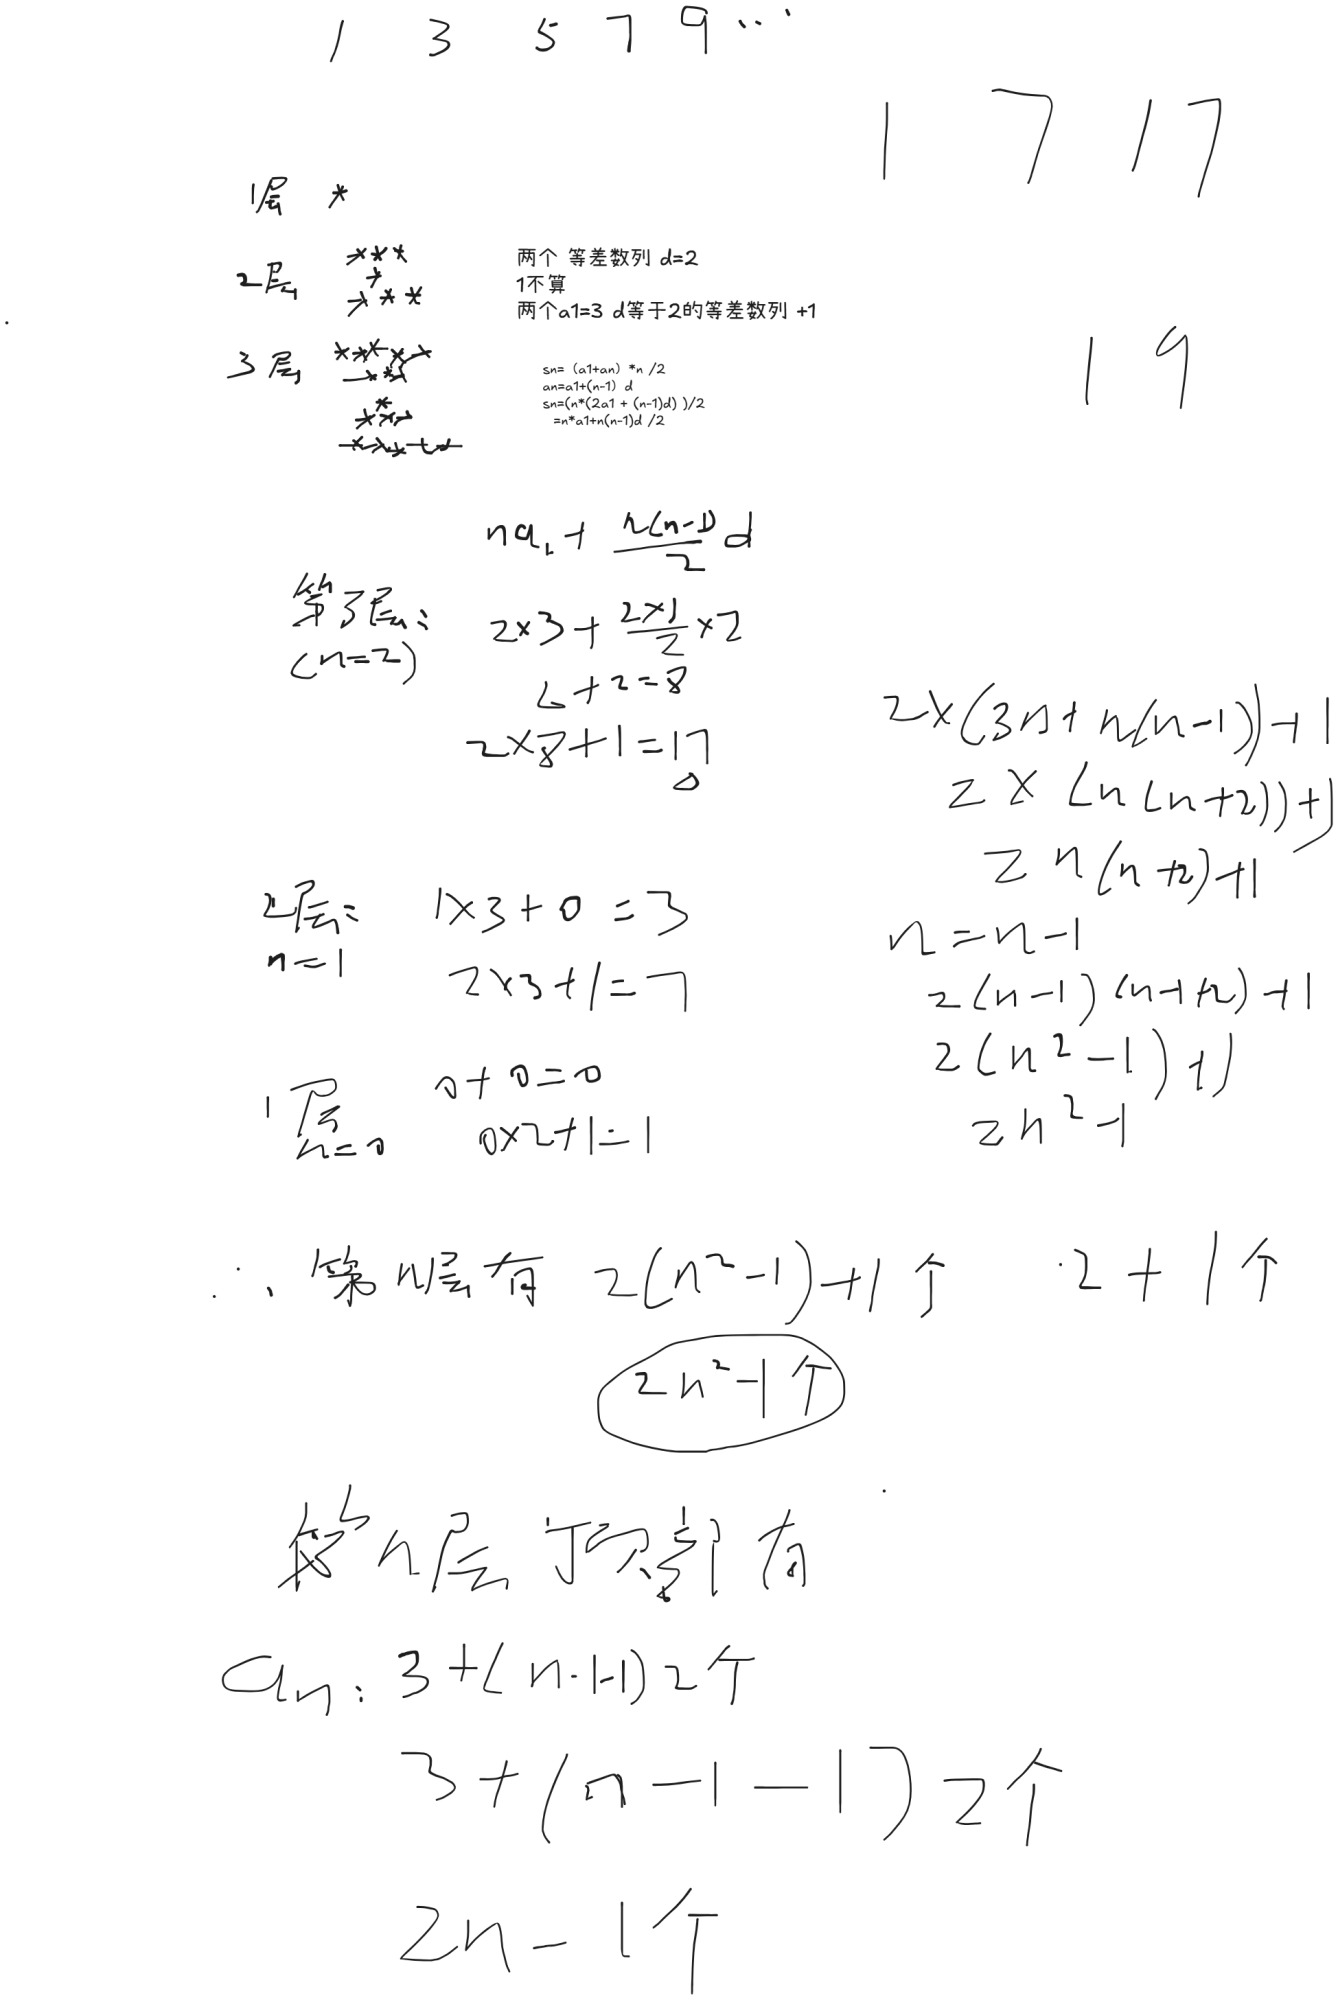 1 3 5 7 9 ...
1 7 17
1层 *
2层 ***
*
***
3层 *****
***
*
***
*****
两个 等差数列 d=2
1不算
两个a1=3 d等于2的等差数列 +1
19
sn= (a1+an) *n /2
an=a1+(n-1) d
sn=(n*(2a1 + (n-1)d) )/2
=n*a1+n(n-1)d /2
na1+ n(n-1)/2 d
第3层:
(n=2)
2×3+ 2×1/2 ×2
6+2=8
2×8+1=17
2层:
n=1
1×3+0=3
2×3+1=7
1层
n=0
0+0=0
0×2+1=1
2×(3n+n(n-1))+1
2×(n(n+2))+1
2n(n+2)+1
n=n-1
2(n-1)(n-1+2)+1
2(n²-1)+1
2n²-1
∴第n层有 2(n²-1)+1个 2+1个
2n²-1个
第n层顶部有
an: 3+(n-1-1)2个
3+(n-1-1)2个
2n-1个